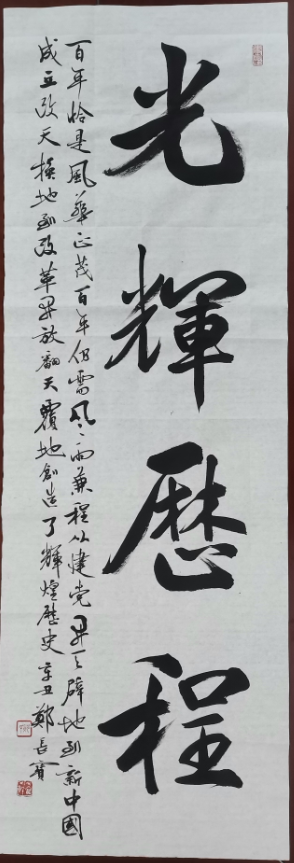 光輝歷程
百年恰是風華正茂百年仍需风雨兼程从建党開天辟地到新中國
成立改天换地到改革開放翻天覆地創造了輝煌歷史辛丑鄭